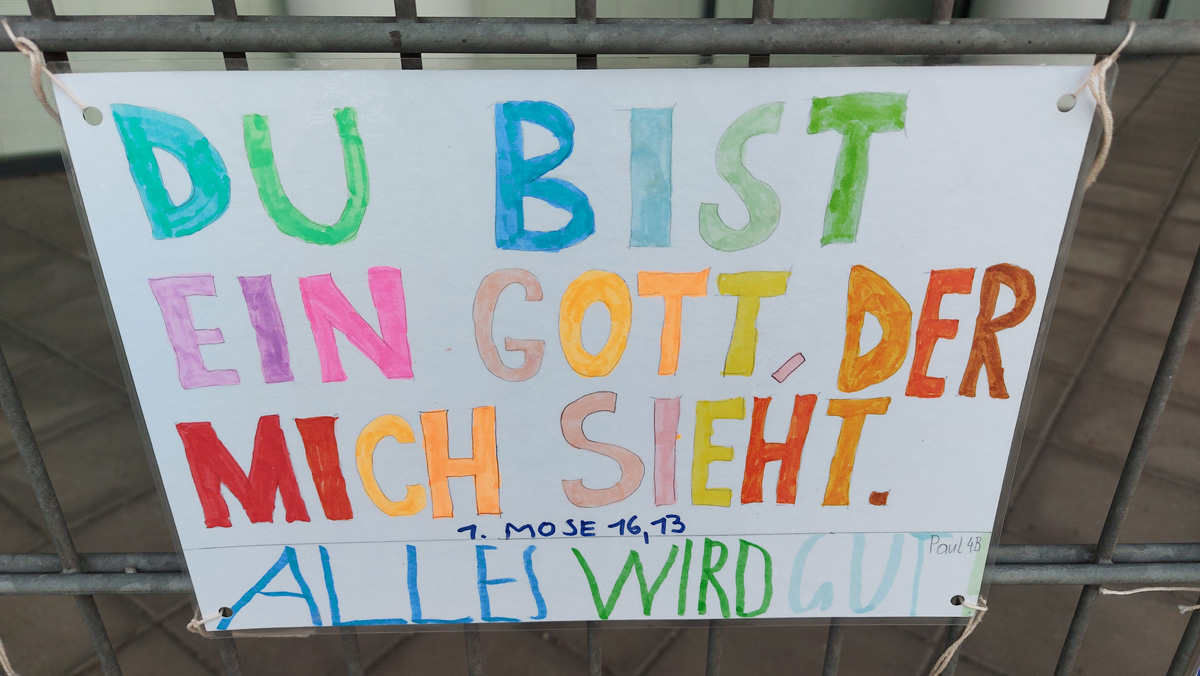 DU BIST
EIN GOTT, DER
MICH SIEHT.
1. MOSE 16,13
ALLES WIRD GUT
Paul 4B